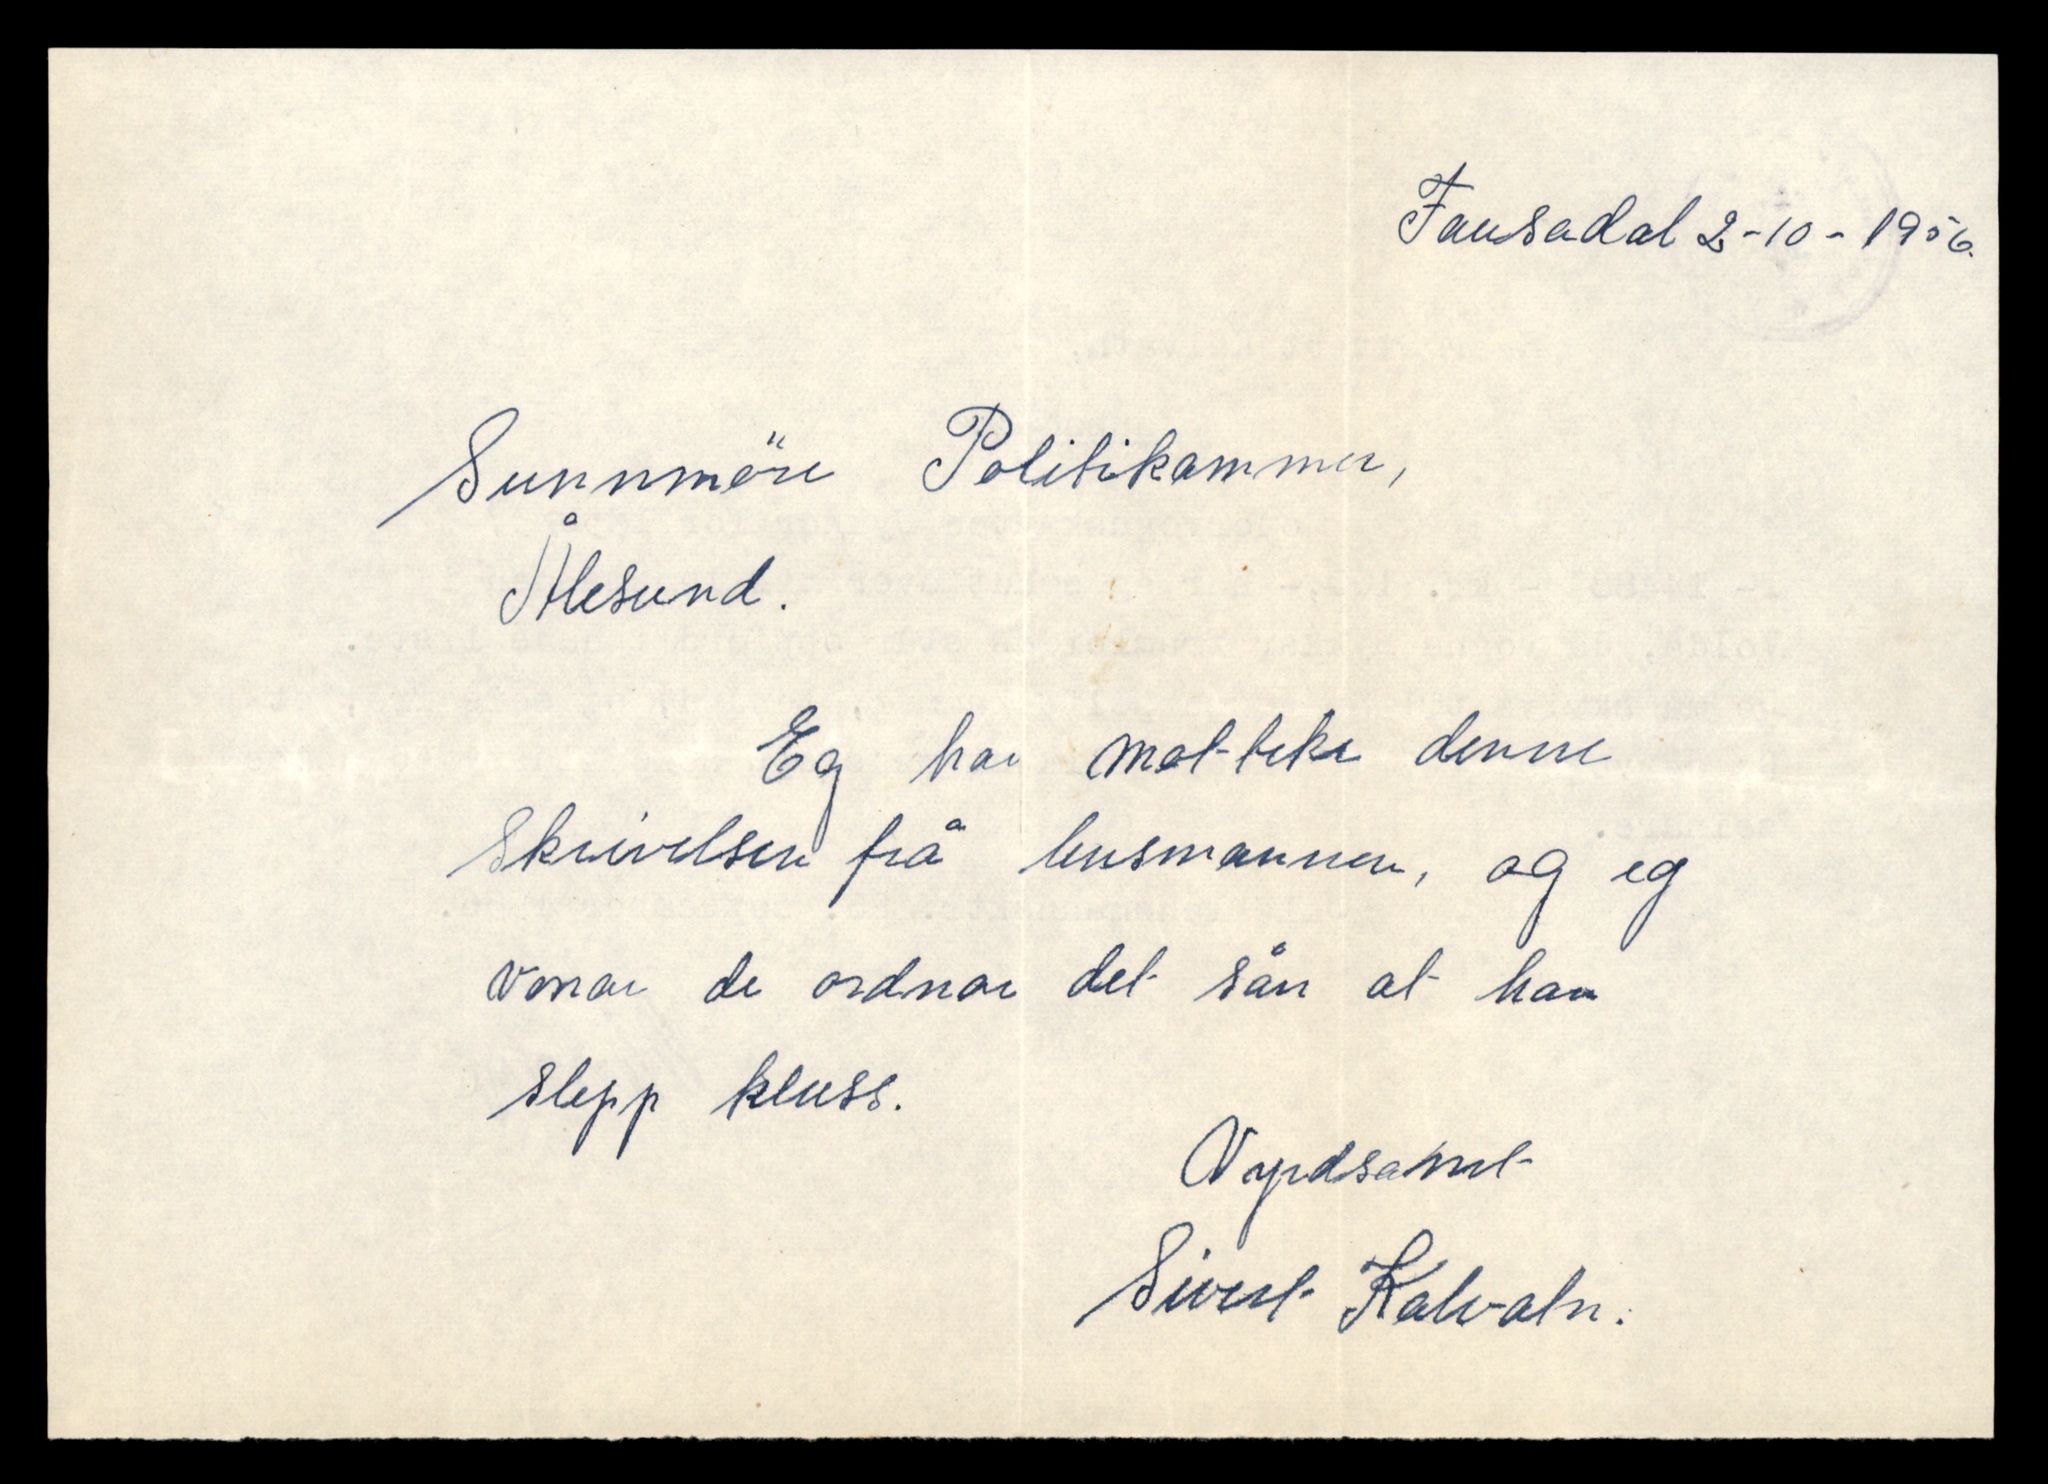 Fausadal 2-10-1956.
Sunnmöre Politikammer,
Ålesund.
Eg har mot-teke denne
skrivelsen frå lensmannen, og eg
vonar de ordnar det sån at han
slepp kluss.
Vyrdsamt
Sivert Kalvatn.